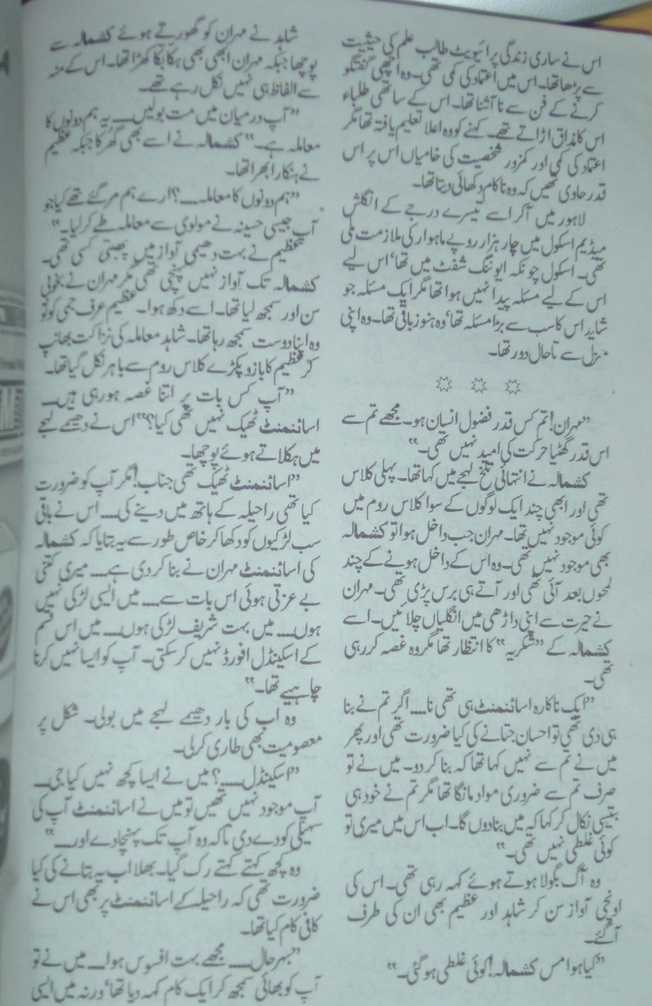 اس نے ساری زندگی پرائیویٹ طالب علم کی حیثیت
سے پڑھا تھا۔ اس میں اعتماد کی کمی تھی۔ وہ اچھی گفتگو
کرنے کے فن سے نا آشنا تھا۔ اس کے ساتھی طلباء
اس کا مذاق اڑاتے تھے۔ کہنے کو وہ اعلا تعلیم یافتہ تھا مگر
اعتماد کی کمی اور کمزور شخصیت کی خامیاں اس پر اس
قدر حاوی تھیں کہ وہ ناکام دکھائی دیتا تھا۔
لاہور میں آکر اسے تیسرے درجے کے انگلش
میڈیم اسکول میں چار ہزار روپے ماہوار کی ملازمت ملی
تھی۔ اسکول چونکہ ایوننگ شفٹ میں تھا' اس لیے
اس کے لیے مسئلہ پیدا نہیں ہوا تھا مگر ایک مسئلہ جو
شاید اس کا سب سے بڑا مسئلہ تھا' وہ ہنوز باقی تھا۔ وہ اپنی
منزل سے تاحال دور تھا۔
"مہران! تم کس قدر فضول انسان ہو۔ مجھے تم سے
اس قدر گھٹیا حرکت کی امید نہیں تھی۔"
کشمالہ نے انتہائی تلخ لہجے میں کہا تھا۔ پہلی کلاس
تھی اور ابھی چند ایک لوگوں کے سوا کلاس روم میں
کوئی موجود نہیں تھا۔ مہران جب داخل ہوا تو کشمالہ
بھی موجود نہیں تھی۔ وہ اس کے داخل ہونے کے چند
لمحوں بعد آئی تھی اور آتے ہی برس پڑی تھی۔ مہران
نے حیرت سے اپنی داڑھی میں انگلیاں چلائیں۔ اسے
کشمالہ کے "شکریہ" کا انتظار تھا مگر وہ غصہ کر رہی
تھی۔
"ایک ناکارہ اسائنمنٹ ہی تھی نا۔۔۔ اگر تم نے بنا
ہی دی تھی تو احسان جتانے کی کیا ضرورت تھی اور پھر
میں نے تم سے نہیں کہا تھا کہ بنا کر دو۔ میں نے تو
صرف تم سے ضروری مواد مانگا تھا مگر تم نے خود ہی
بتیسی نکال کر کہا کہ میں بنادوں گا۔ اب اس میں میری تو
کوئی غلطی نہیں تھی۔"
وہ آگ بگولا ہوتے ہوئے کہہ رہی تھی۔ اس کی
اونچی آواز سن کر شاہد اور عظیم بھی ان کی طرف
آگئے۔
"کیا ہوا مس کشمالہ! کوئی غلطی ہو گئی۔"
شاہد نے مہران کو گھورتے ہوئے کشمالہ سے
پوچھا جبکہ مہران ابھی بھی ہکا بکا کھڑا تھا۔ اس کے منہ
سے الفاظ ہی نہیں نکل رہے تھے۔
"آپ درمیان میں مت بولیں۔۔۔ یہ ہم دونوں کا
معاملہ ہے۔" کشمالہ نے اسے بھی گھرکا جبکہ عظیم
نے ہنکارا بھرا تھا۔
"ہم دونوں کا معاملہ۔۔۔؟ ارے ہم مر گئے تھے کیا جو
آپ جیسی حسینہ نے مولوی سے معاملہ طے کر لیا۔"
عظیم نے بہت دھیمی آواز میں پھبتی کسی تھی۔
کشمالہ تک آواز نہیں پہنچی تھی مگر مہران نے بخوبی
سن اور سمجھ لیا تھا۔ اسے دکھ ہوا۔ عظیم عرف جمی کو تو
وہ اپنا دوست سمجھ رہا تھا۔ شاہد معاملہ کی نزاکت بھانپ
کر عظیم کا بازو پکڑے کلاس روم سے باہر نکل گیا تھا۔
"آپ کس بات پر اتنا غصہ ہو رہی ہیں۔۔۔
اسائنمنٹ ٹھیک نہیں تھی کیا؟" اس نے دھیمے لہجے
میں ہکلاتے ہوئے پوچھا۔
"اسائنمنٹ ٹھیک تھی جناب! مگر آپ کو ضرورت
کیا تھی راحیلہ کے ہاتھ میں دینے کی۔۔۔ اس نے باقی
سب لڑکیوں کو دکھا کر خاص طور سے یہ بتایا کہ کشمالہ
کی اسائنمنٹ مہران نے بنا کر دی ہے۔۔۔ میری کتنی
بے عزتی ہوئی اس بات سے۔۔۔ میں ایسی لڑکی نہیں
ہوں۔۔۔ میں بہت شریف لڑکی ہوں۔۔۔ میں اس قسم
کے اسکینڈل افورڈ نہیں کر سکتی۔ آپ کو ایسا نہیں کرنا
چاہیے تھا۔"
وہ اب کی بار دھیمے لہجے میں بولی۔ شکل پر
معصومیت بھی طاری کر لی۔
"اسکینڈل۔۔۔؟ میں نے ایسا کچھ نہیں کیا جی۔۔۔
آپ موجود نہیں تھیں تو میں نے اسائنمنٹ آپ کی
سہیلی کو دے دی تاکہ وہ آپ تک پہنچا دے اور۔۔۔"
وہ کچھ کہتے کہتے رک گیا۔ بھلا اب یہ بتانے کی کیا
ضرورت تھی کہ راحیلہ کے اسائنمنٹ پر بھی اس نے
کافی کام کیا تھا۔
"بہرحال۔۔۔ مجھے بہت افسوس ہوا۔۔۔ میں نے تو
آپ کو بھائی سمجھ کر ایک کام کہہ دیا تھا' ورنہ میں ایسی